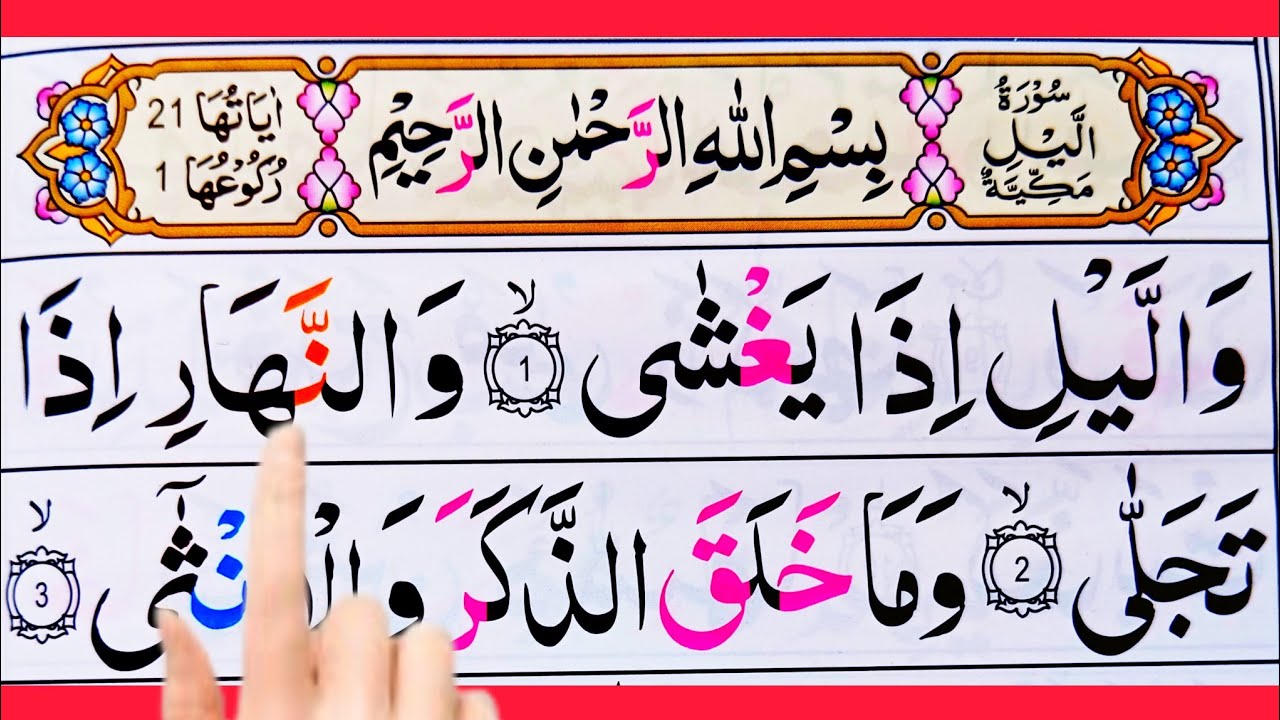 سُوْرَةُ
الَّيْلِ
مَكِّيَّةٌ
بِسْمِ اللّٰهِ الرَّحْمٰنِ الرَّحِيْمِ
اٰيَاتُهَا 21
رُكُوْعُهَا 1
وَالَّيْلِ اِذَا يَغْشٰى ۙ 1 وَالنَّهَارِ اِذَا
تَجَلّٰى ۙ 2 وَمَا خَلَقَ الذَّكَرَ وَالْاُنْثٰٓى ۙ 3